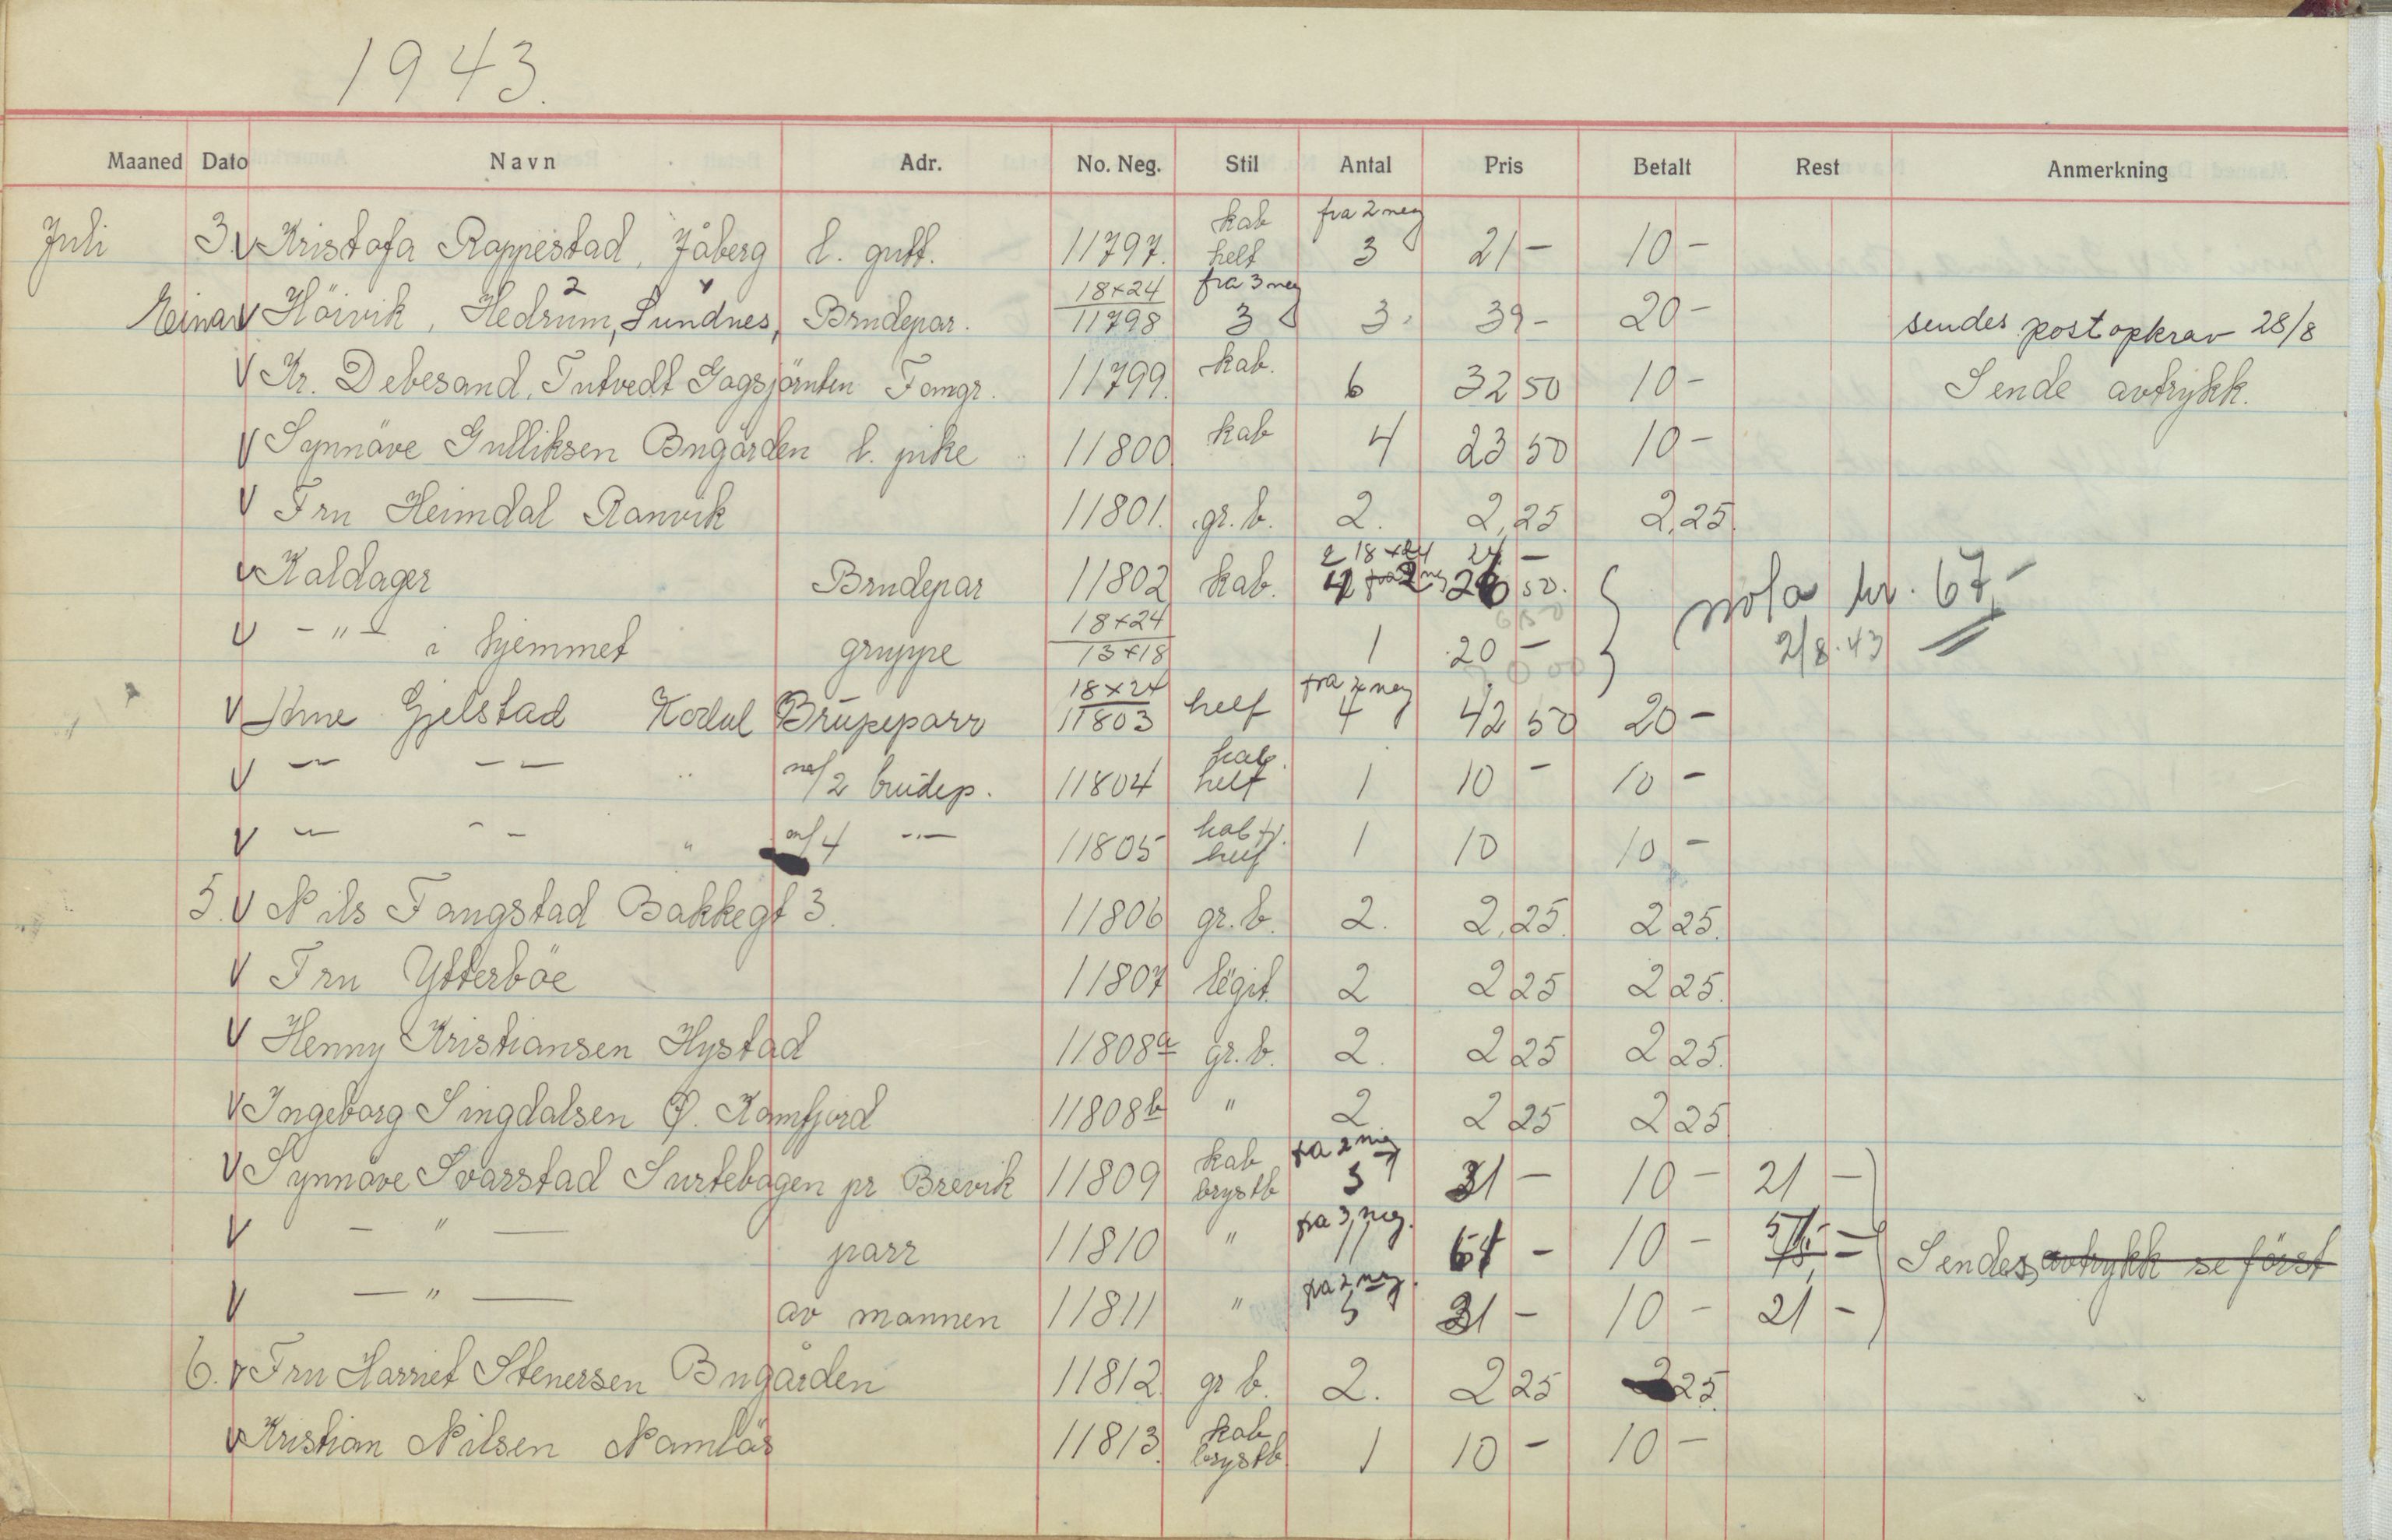 1943.
Maaned Dato Navn Adr. No. Neg. Stil Antal Pris Betalt Rest Anmerkning
Juli 3. V Kristofa Rappestad, Jåberg l. gutt. 11797. kab helf fra 2 neg 3 21 – 10 –
Einar V Höivik, Hedrum, Sundnes, Brudepar. 18×24 11798 fra 3 neg 3 3 39 – 20 – sendes postopkrav 28/8
V Kr. Debesand, Tutvedt Gogsjörnten Famgr. 11799. kab. 6 32 50 10 – Sende avtrykk.
V Synnöve Gulliksen Bugården l. pike 11800 kab 4 23 50 10 –
V Fru Heimdal Ranvik 11801. gr. b. 2. 2,25 2,25.
V Kaldager Brudepar 11802 kab. 2 18×24 24 – 4 fra 2 neg 26 50.
V – " – i hjemmet gruppe 18×24 13×18 1 20 – } nota kr. 67,– 2/8.43
V Arne Gjelstad Kodal Brupeparr 18×24 11803 helf fra 2 neg 4 42 50 20 –
V – – – " m/2 brudep. 11804 kab. helf 1 10 – 10 –
V – – – " m/4 –"– 11805 kab fj. helf 1 10 10 –
5. V Nils Tangstad Bakkegt 3. 11806 gr. b. 2. 2,25. 2 25.
V Fru Ytterböe 11807 legit. 2 2 25 2 25.
V Henny Kristiansen Hystad 11808a gr. b. 2. 2 25 2 25.
V Ingeborg Singdalsen Ø. Kamfjord 11808b " 2 2 25 2 25
V Synnöve Svarstad Surtebogen pr Brevik 11809 kab brystb fra 2 neg 5 31 – 10 – 21 –
V – " – parr 11810 " fra 3 neg. 11 61 – 10 – 51,– Sendes, avtrykk se först
V – " – av mannen 11811 " fra 2 neg. 5 31 – 10 – 21 –
6. V Fru Harriet Stenersen Bugården 11812. gr b. 2. 2 25 2 25.
V Kristian Nilsen Namlös 11813. kab brystb 1 10 – 10 –